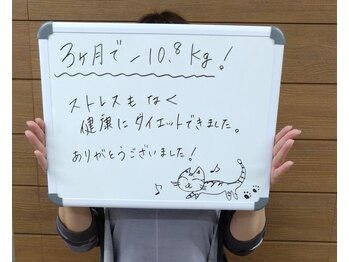 3ヶ月で -10.8kg!
ストレスもなく
健康にダイエットできました。
ありがとうございました!